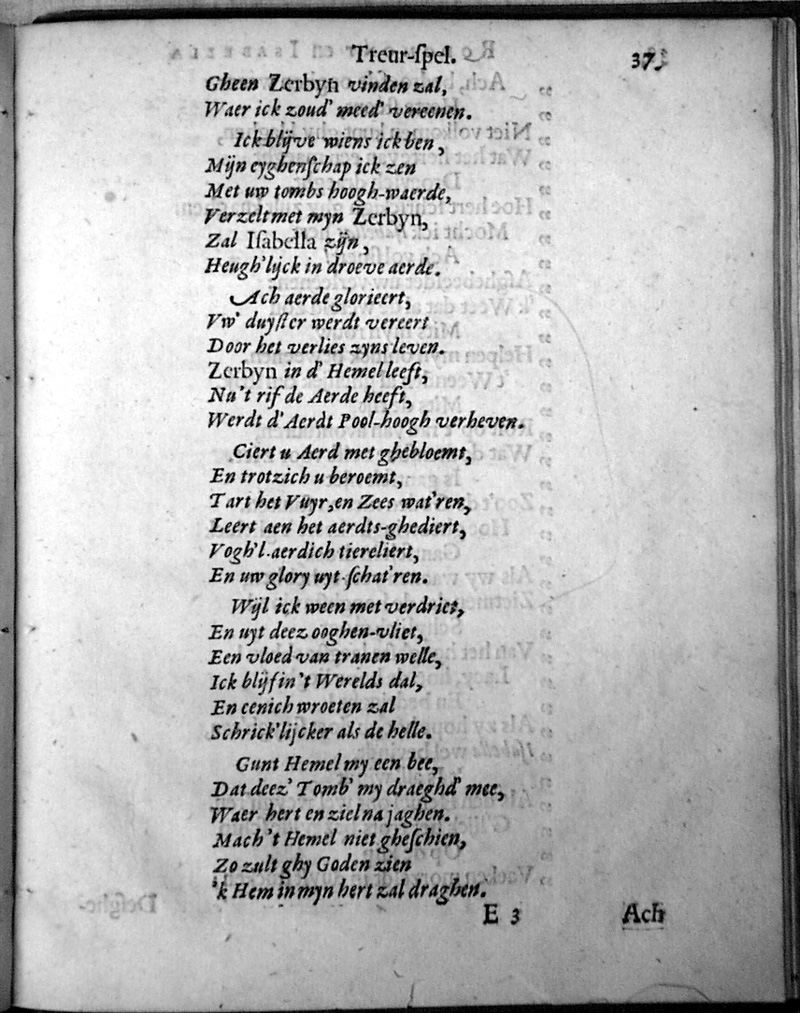 Treur-ſpel. 37.
Gheen Zerbyn vinden zal,
Waer ick zoud' meed' vereenen.
Ick blijve wiens ick ben,
Mijn eyghenſchap ick zen
Met uw tombs hoogh-waerde,
Verzelt met myn Zerbyn,
Zal Iſabella zijn,
Heugh'lijck in droeve aerde.
Ach aerde glorieert,
Vw' duyſter werdt vereert
Door het verlies zyns leven.
Zerbyn in d' Hemel leeft,
Nu 't rif de Aerde heeft,
Werdt d' Aerdt Pool-hoogh verheven.
Ciert u Aerd met ghebloemt,
En trotzich u beroemt,
Tart het Vuyr, en Zees wat'ren,
Leert aen het aerdts-ghediert,
Vogh'l-aerdich tiereliert,
En uw glory uyt-ſchat'ren.
Wijl ick ween met verdriet,
En uyt deez ooghen-vliet,
Een vloed van tranen welle,
Ick blijf in 't Werelds dal,
En eenich wroeten zal
Schrick'lijcker als de helle.
Gunt Hemel my een bee,
Dat deez' Tomb' my draeghd' mee,
Waer hert en ziel na jaghen.
Mach 't Hemel niet gheſchien,
Zo zult ghy Goden zien
'k Hem in myn hert zal draghen.
E 3 Ach